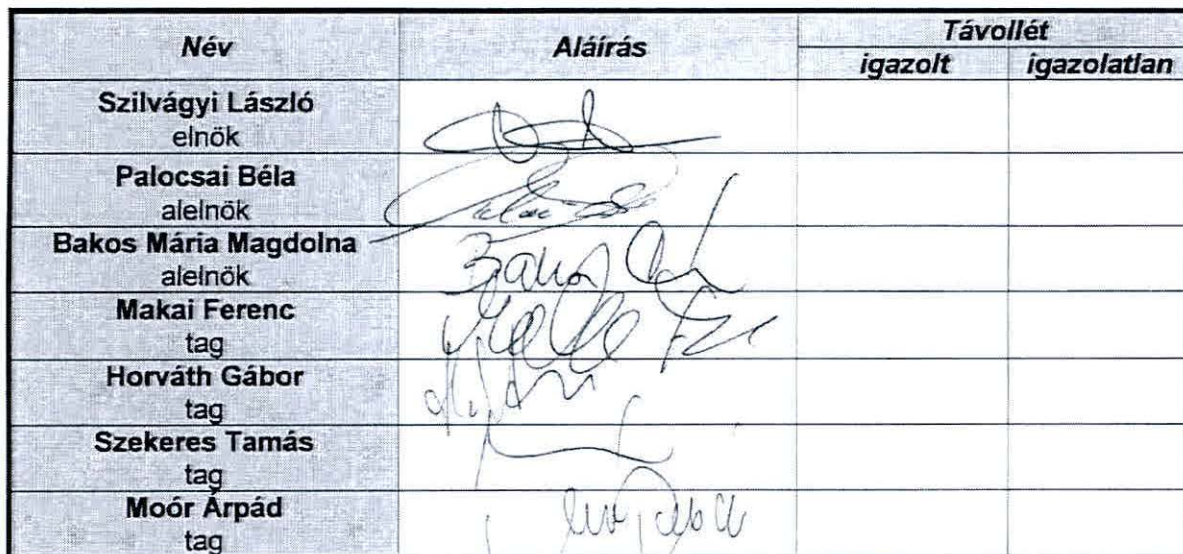 Név Aláírás Távollét
igazolt igazolatlan
Szilvágyi László
elnök
Palocsai Béla
alelnök
Bakos Mária Magdolna
alelnök
Makai Ferenc
tag
Horváth Gábor
tag
Szekeres Tamás
tag
Moór Árpád
tag